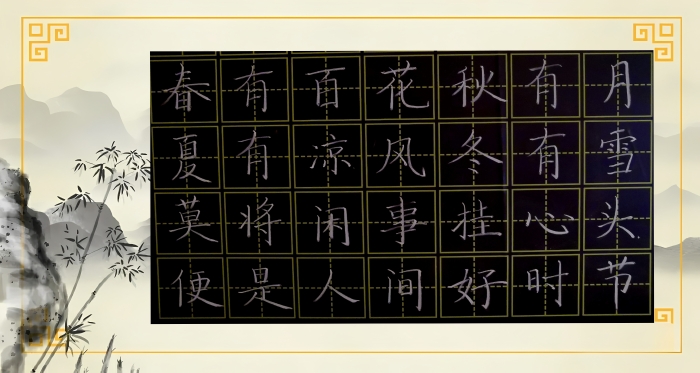 春有百花秋有月
夏有凉风冬有雪
莫将闲事挂心头
便是人间好时节